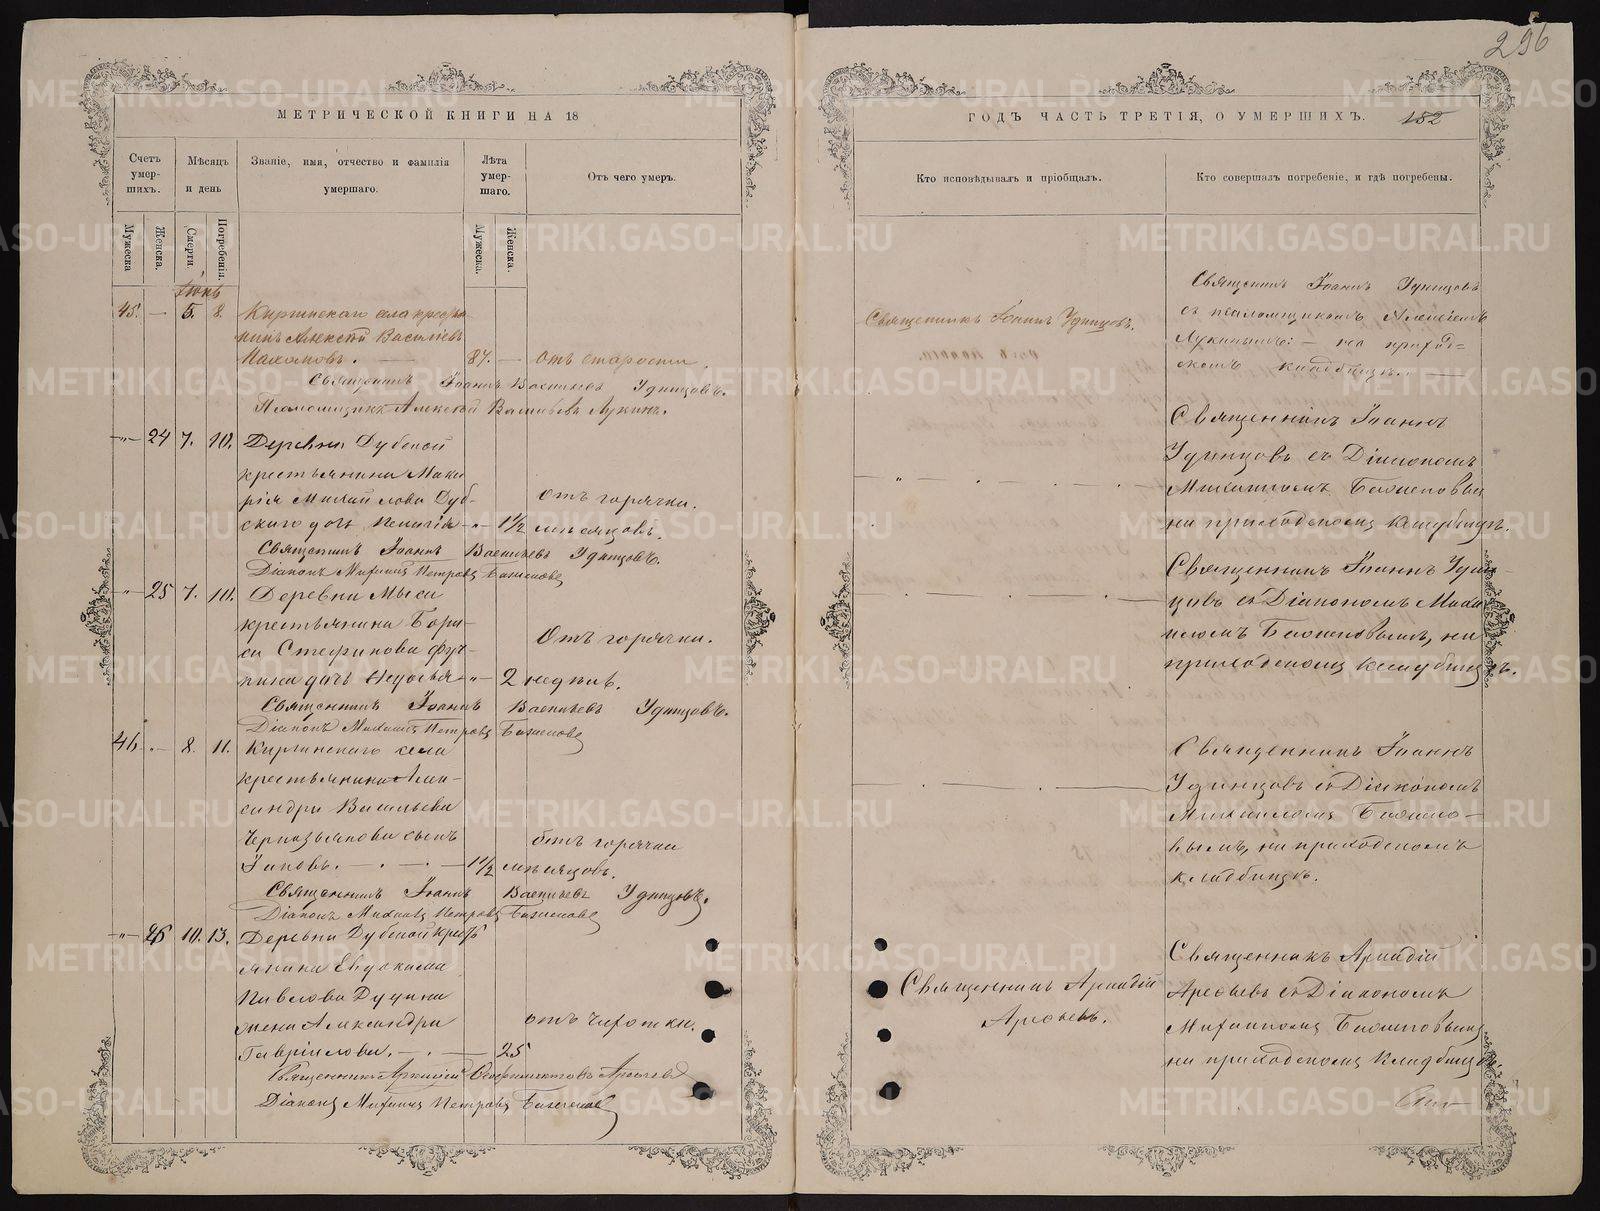 296
МЕТРИЧЕСКОЙ КНИГИ НА 18
Счетъ умер-шихъ.
Мѣсяцъ и день
Званіе, имя, отчество и фамилія умершаго.
Лѣта умер-шаго.
Отъ чего умеръ.
Мужеска
Женска.
Смерти.
Погребенія.
Мужеска.
Женска.
Іюнь
45. — 5. 8. Киргинскаго села крестья
нинъ Алексѣй Васильевъ
87. — отъ старости.
Священникъ Іоаннъ Васильевъ Удинцовъ.
Псаломщикъ Алексѣй Васильевъ Лукинъ.
-"- 24 7. 10. Деревни Дубской
крестьянина Мака
рія Михайлова Дуб-
скаго дочь -"- 1½
отъ горячки.
мѣсяцовъ.
Священникъ Іоаннъ Васильевъ Удинцовъ.
Діаконъ Михаилъ Петровъ
-"- 25 7. 10. Деревни Мыса
крестьянина Бори-
са дочь -"- 2 недѣль.
Отъ горячки.
Священникъ Іоаннъ Васильевъ Удинцовъ.
Діаконъ Михаилъ Петровъ
46. — 8. 11. Киргинскаго села
крестьянина Алек-
сандра Васильева
сынъ
Іаковъ. — 1½ мѣсяцовъ.
отъ горячки
Священникъ Іоаннъ Васильевъ Удинцовъ.
Діаконъ Михаилъ Петровъ
-"- 26 10. 13. Деревни Дубской кресть
янина Евдокима
Павлова
жена Александра
Гавріилова. — 25
отъ чахотки.
Священникъ Аркадій Арефьевъ
Діаконъ Михаилъ Петровъ
ГОДЪ ЧАСТЬ ТРЕТІЯ, О УМЕРШИХЪ.
182
Кто исповѣдывалъ и пріобщалъ.
Кто совершалъ погребеніе, и гдѣ погребены.
Священникъ Іоаннъ Удинцовъ.
Священникъ Іоаннъ Удинцовъ
съ псаломщикомъ Алексѣемъ
Лукинымъ: — на приход-
скомъ кладбищѣ. —
Священникъ Іоаннъ
Удинцовъ съ Діакономъ
Михаиломъ
на приходскомъ кладбищѣ.
Священникъ Іоаннъ Удин-
цовъ съ Діакономъ Миха
иломъ на
приходскомъ кладбищѣ.
Священникъ Іоаннъ
Удинцовъ съ Діакономъ
Михаиломъ
вымъ, на приходскомъ
кладбищѣ.
Священникъ Аркадій
Арефьевъ.
Священникъ Аркадій
Арефьевъ съ Діакономъ
Михаиломъ
на приходскомъ кладбищѣ.
METRIKI.GASO-URAL.RU